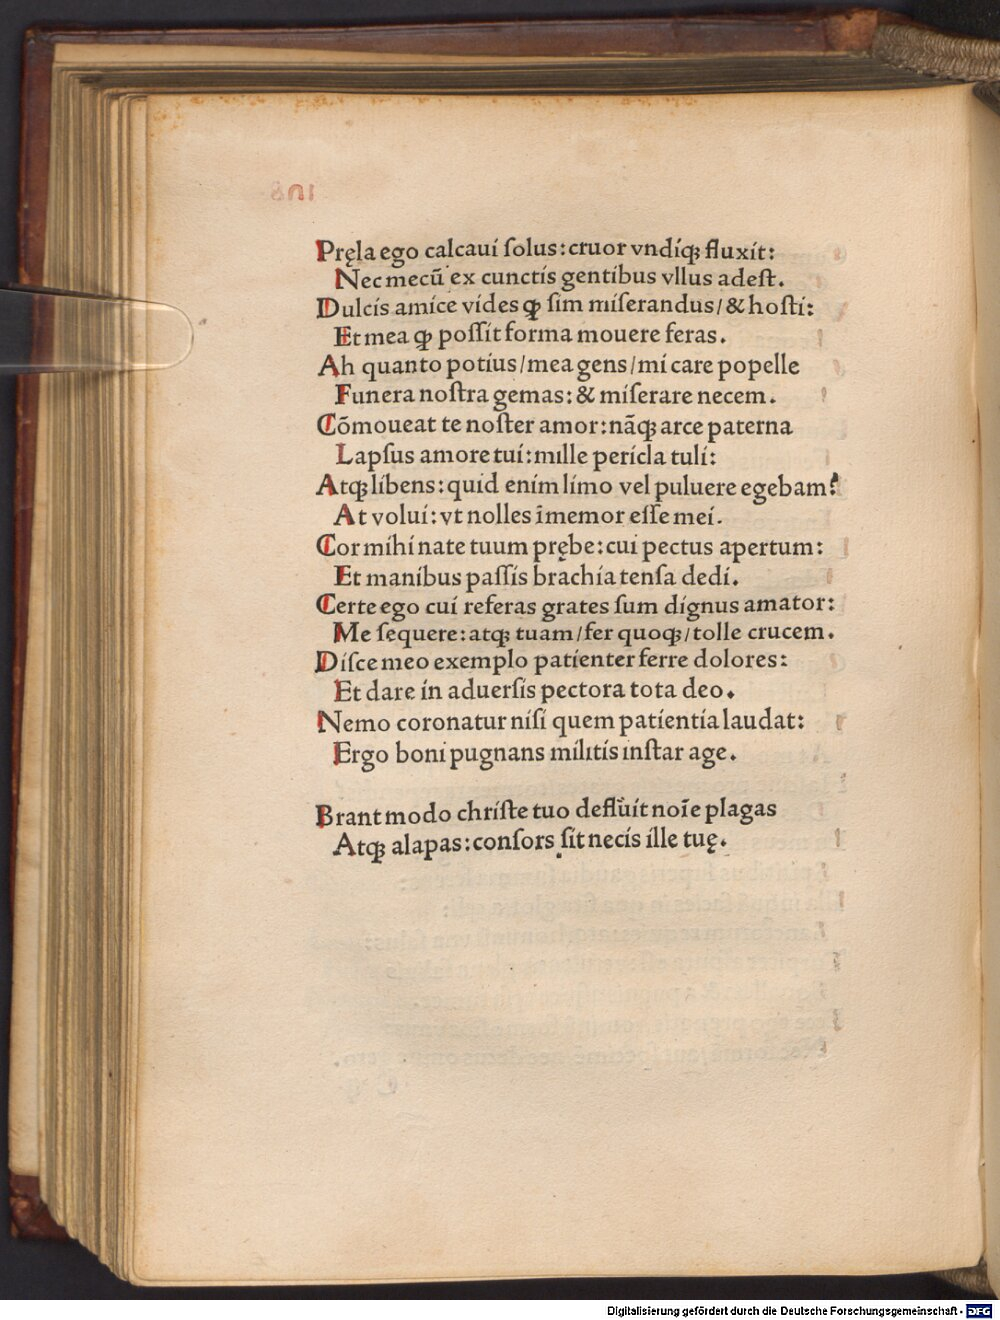 Pręla ego calcaui ſolus: cruor vndiqꝫ fluxit:
Nec mecū ex cunctis gentibus vllus adeſt.
Dulcis amice vides ꝙ ſim miſerandus/ & hoſti:
Et mea ꝙ poſſit forma mouere feras.
Ah quanto potius/ mea gens/ mi care popelle
Funera noſtra gemas: & miſerare necem.
Cōmoueat te noſter amor: nāqꝫ arce paterna
Lapſus amore tui: mille pericla tuli:
Atqꝫ libens: quid enim limo vel puluere egebam?
At volui: vt nolles īmemor eſſe mei.
Cor mihi nate tuum prębe: cui pectus apertum:
Et manibus paſſis brachia tenſa dedi.
Certe ego cui referas grates ſum dignus amator:
Me ſequere: atqꝫ tuam/ fer quoqꝫ/ tolle crucem.
Diſce meo exemplo patienter ferre dolores:
Et dare in aduerſis pectora tota deo.
Nemo coronatur niſi quem patientia laudat:
Ergo boni pugnans militis inſtar age.
Brant modo chriſte tuo defluit noīe plagas
Atqꝫ alapas: conſors ſit necis ille tuę.
Digitalisierung gefördert durch die Deutsche Forschungsgemeinschaft - DFG